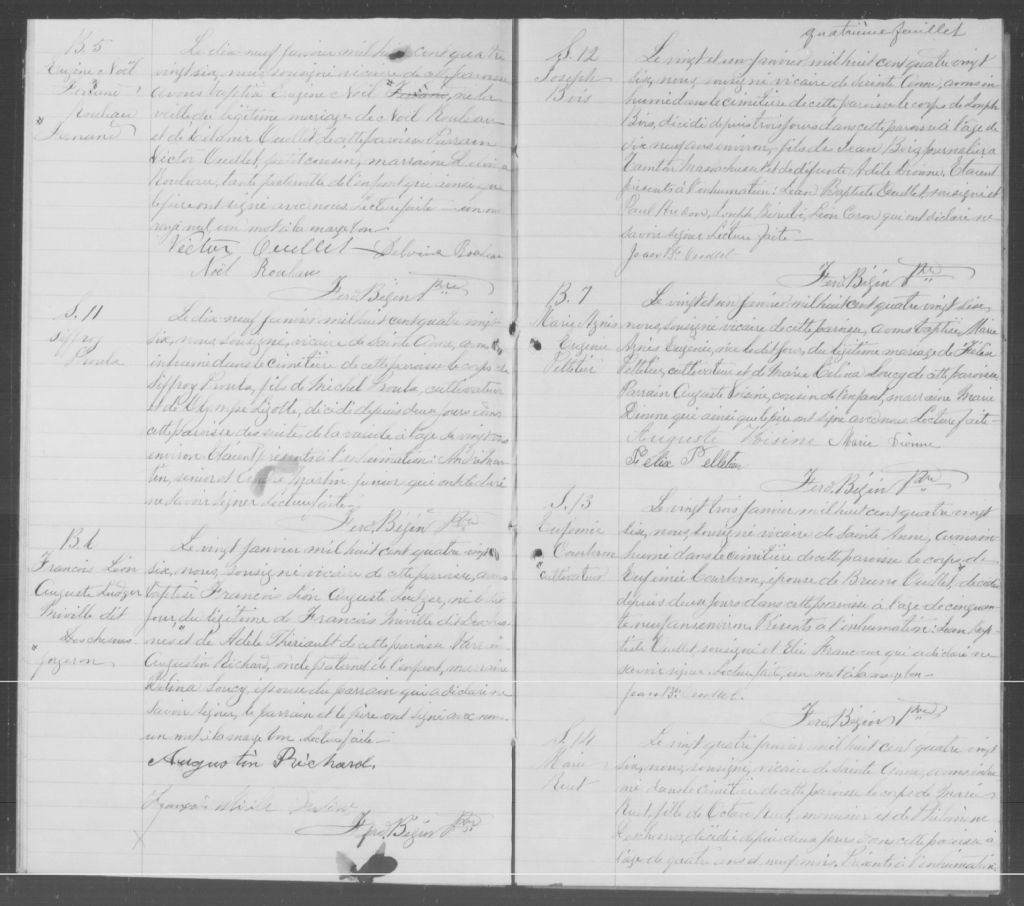 B. 5
Eugène Noël
Fernand
Rouleau
"Fernand"
Le dix-neuf janvier mil huit cent quatre
vingt six, nous soussigné vicaire de cette paroisse
avons baptisé Eugène Noël né la
veille du légitime mariage de Noël Rouleau
et de Ouellet de cette paroisse Parrain
Victor Ouellet petit cousin, marraine Delvina
Rouleau, tante paternelle de l'enfant qui ainsi que
le père ont signé avec nous. Lecture faite — un mot
rayé nul, un mot à la marge bon
Victor Ouellet Delvina Rouleau
Noël Rouleau
Ferd. Bégin Ptre
S. 11
Siffroy
Proulx
Le dix neuf janvier mil huit cent quatre vingt
six, nous soussigné, vicaire de Sainte Anne, avons
inhumé dans le cimetière de cette paroisse le corps de
Siffroy Proulx, fils de Michel Proulx, cultivateur
et de Olympe Lizotte, décédé depuis deux jours dans
cette paroisse des suites de la à l'âge de vingt ans
environ. Étaient présents à l'inhumation: André Mar-
tin, senior et Martin junior qui ont déclaré
ne savoir signer lecture faite.
Ferd. Bégin Ptre
B. 6
François Léon
Auguste Ludger
Miville dit
Deschenes
Le vingt janvier mil huit cent quatre vingt
six, nous, soussigné vicaire de cette paroisse, avons
baptisé François Léon Auguste Ludger, né le dit
jour, du légitime de François Miville dit Desches-
nes et de Adèle Thériault de cette paroisse Parrain
Augustin Richard, oncle paternel de l'enfant, marraine
Délina Soucy, épouse du parrain qui a déclaré ne
savoir signer, le parrain et le père ont signé avec nous.
un mot à la marge bon Lecture faite —
Augustin Richard.
François
Ferd. Bégin Ptre
quatrième feuillet
S. 12
Joseph
Bois
Le vingt et un janvier, mil huit cent quatre vingt
six, nous, soussigné vicaire de Sainte Anne, avons in-
humé dans le cimetière de cette paroisse le corps de Joseph
Bois, décédé depuis trois jours dans cette paroisse à l'âge de
dix neuf ans environ, fils de Jean Bois journalier à
Massachusset et de défunte Adèle Dionne, Étaient
présents à l'inhumation: Jean Baptiste Ouellet, soussigné et
Paul Joseph Léon Caron qui ont déclaré ne
savoir signer Lecture faite —
Jean Bte Ouellet
Ferd. Bégin Ptre
B. 7
Marie Agnès
Eugenie
Pelletier
Le vingt et un janvier, mil huit cent quatre vingt six,
nous, soussigné vicaire de cette paroisse, avons baptisé Marie
Agnès Eugenie, née le dit jour, du légitime mariage de Félix
Pelletier, cultivateur et de Marie Célina Soucy de cette paroisse
Parrain Auguste Voisine, cousin de l'enfant, marraine Marie
Dionne qui ainsi que le père ont signé avec nous Lecture faite —
Auguste Voisine Marie Dionne
Félix Pelletier
Ferd. Bégin Ptre
S. 13
Eufemie
Courteron
"cultivateur
Le vingt trois janvier mil huit cent quatre vingt
six, nous, soussigné vicaire de Sainte Anne, avons in-
humé dans le cimetière de cette paroisse le corps de
Eufemie Courteron, épouse de Bruno Ouellet " décédée
depuis deux jours dans cette paroisse à l'âge de cinquan-
te neuf ans environ. Présents à l'inhumation: Jean Bap-
tiste Ouellet, soussigné et Francoeur qui a déclaré ne
savoir signer Lecture faite, un mot à la marge bon —
Jean Bte Ouellet.
Ferd. Bégin Ptre
S. 14
Marie
Le vingt quatre janvier mil huit cent quatre vingt
six, nous, soussigné, vicaire de Sainte Anne, avons inhu-
mé dans le cimetière de cette paroisse le corps de Marie
fille de Octave menuisier et de
Deschenes, décédée depuis deux jours dans cette paroisse à
l'âge de quatre ans et neuf mois. Présents à l'inhumation